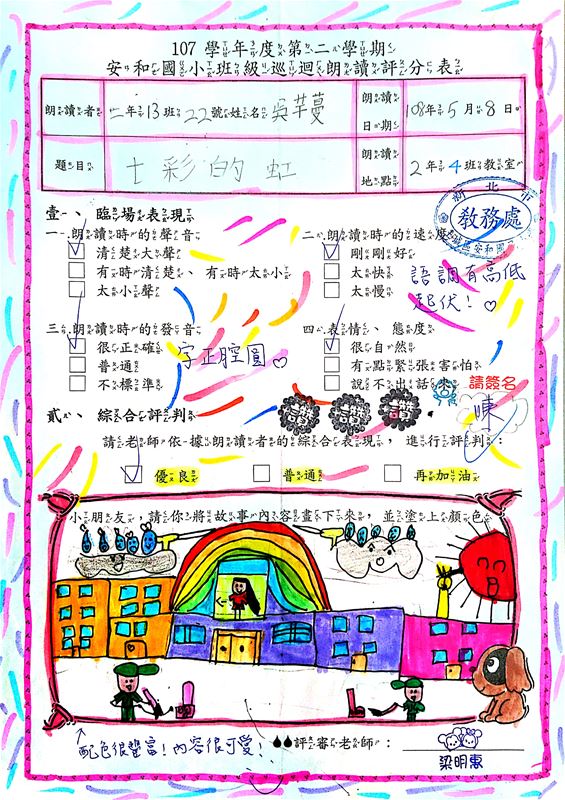 107 學年度第二學期
安和國小班級巡迴朗讀評分表
朗讀者 二年13班22號姓名吳芊蔓
朗讀日期 108年5月8日
題目 七彩的虹
朗讀地點 2年4班教室
新北市
教務處
壹、臨場表現
一、朗讀時的聲音
清楚大聲
有時清楚、有時太小聲
太小聲
二、朗讀時的速度
剛剛好
太快
太慢
語調有高低
起伏!♡
三、朗讀時的發音
很正確
普通
不標準
字正腔圓♡
四、表情、態度
很自然
有點緊張害怕
說不出話來
請簽名
陳
貳、綜合評判
請老師依據朗讀者的綜合表現,進行評判:
優良
普通
再加油
小朋友,請你將故事內容畫下來,並塗上顏色
↑配色很豐富!內容很可愛!
評審老師:
梁明東